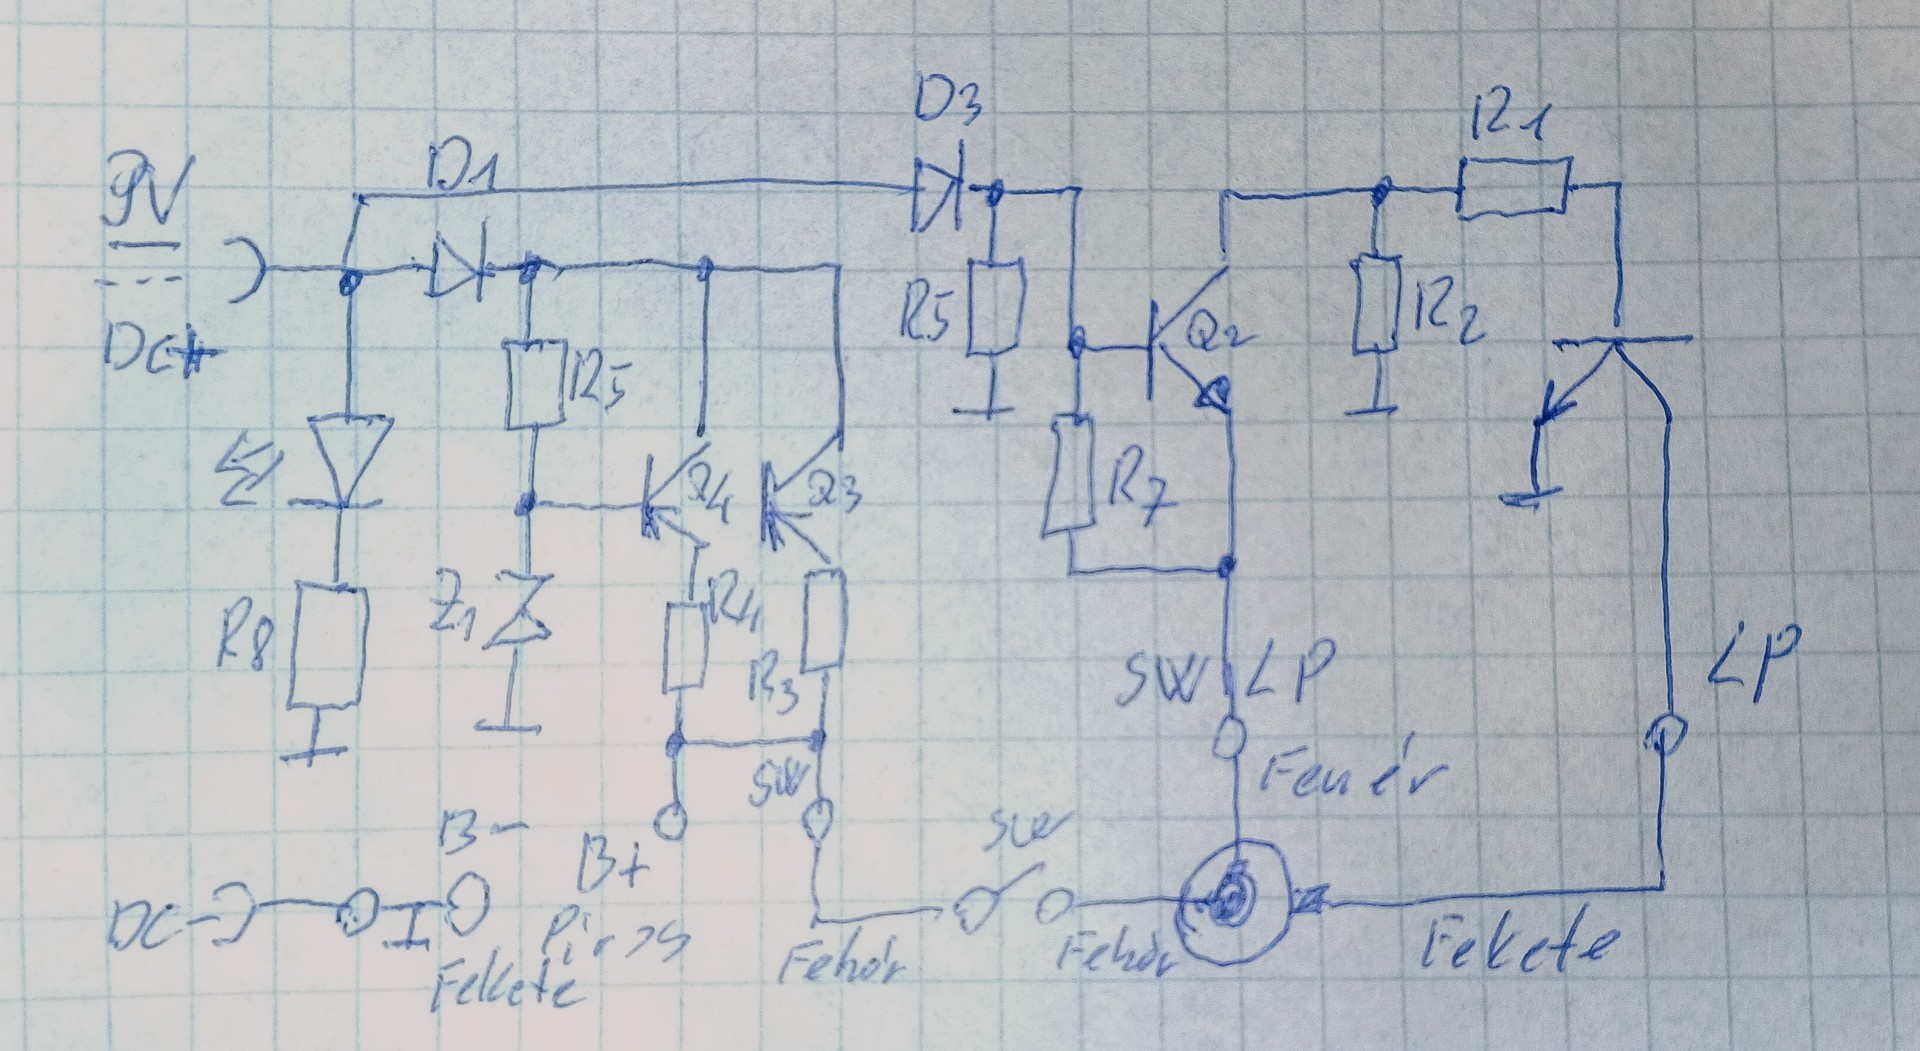 9V
DC+
D1
D3
R1
R5
Q2
R2
R5
Q4
Q3
R7
R8
Z1
R4
R3
SW
LP
LP
Fehér
SW
B-
B+
SW
DC-
Piros
Fekete
Fehér
Fehér
Fekete